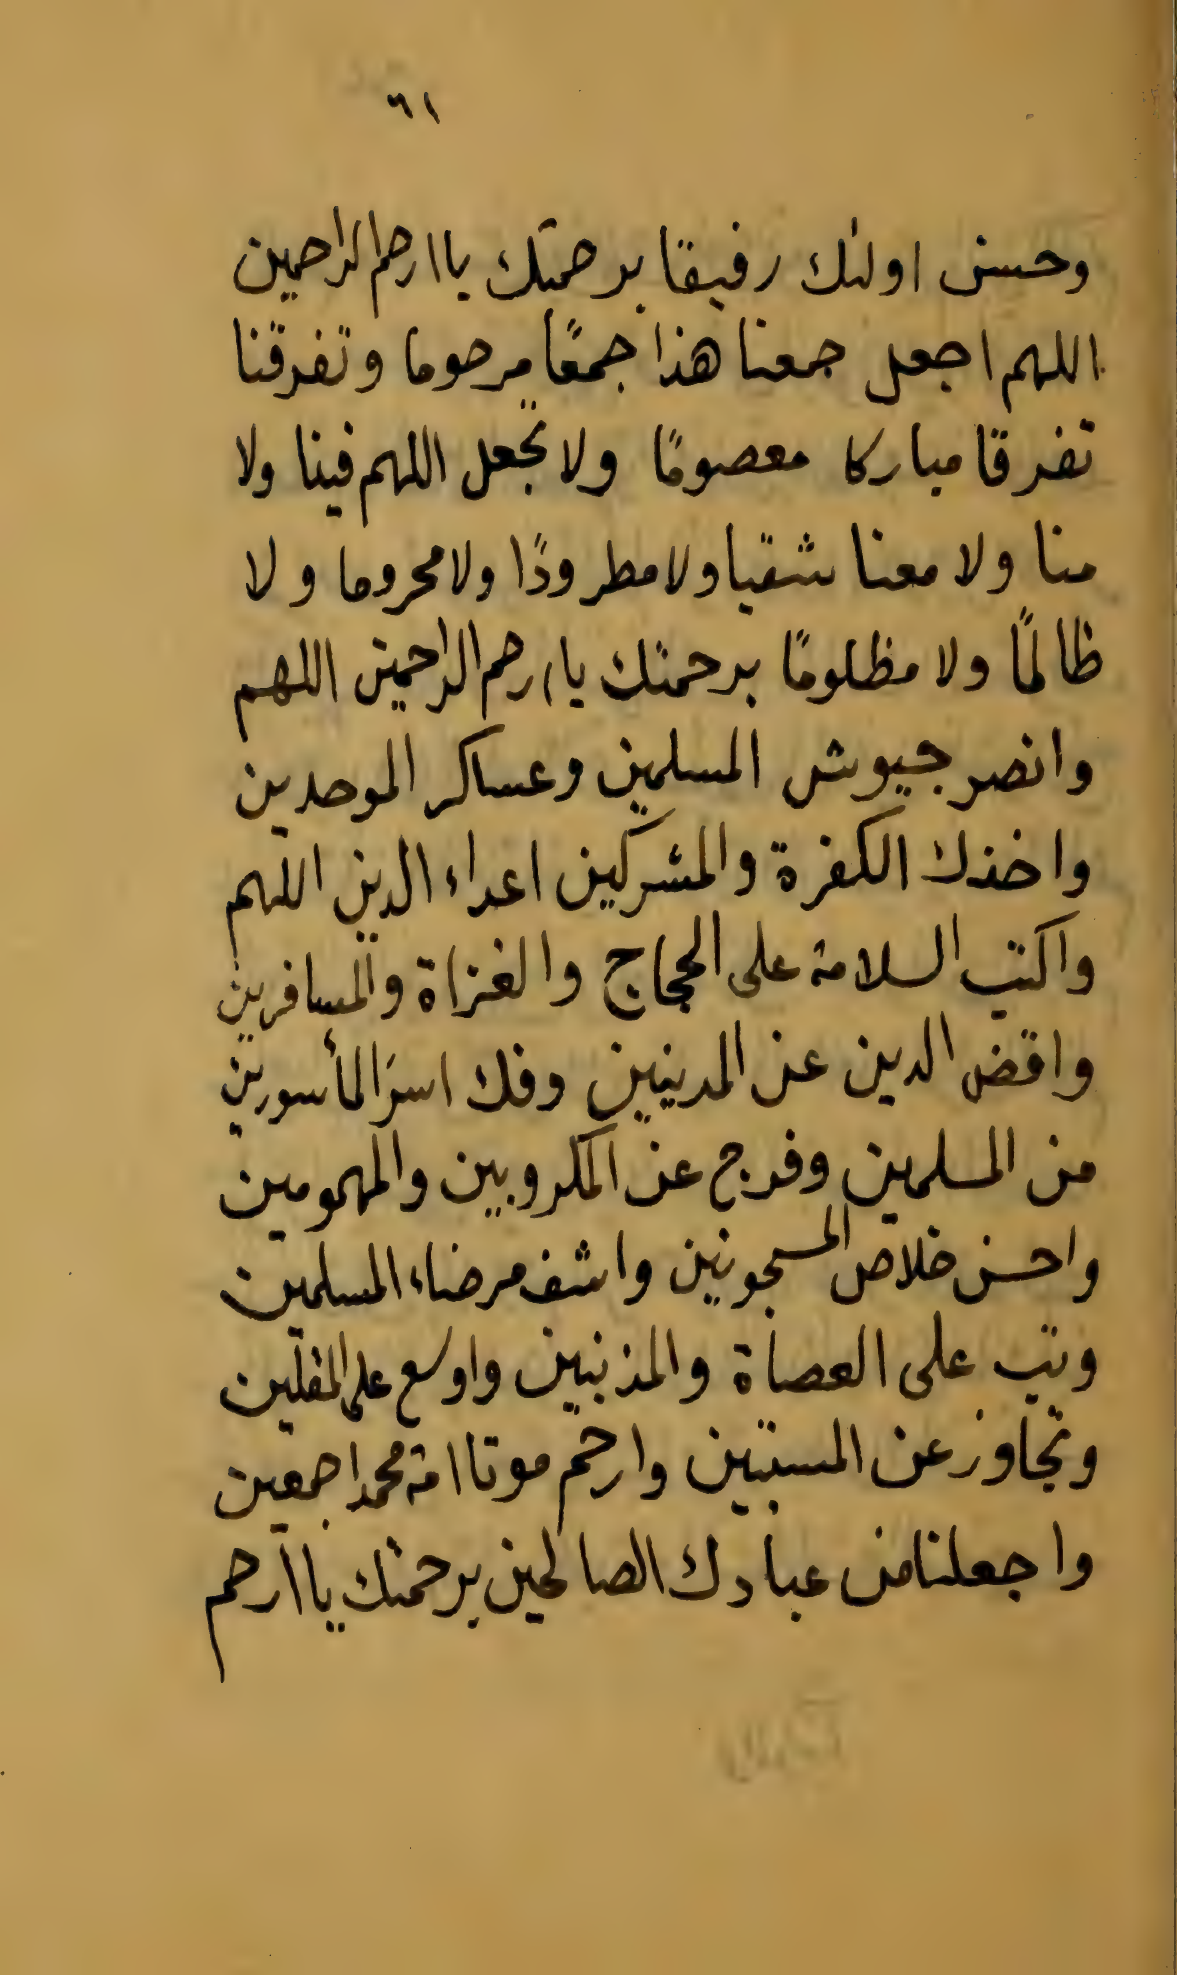 ٦١
وحسن اولئك رفيقا برحمتك يا ارحم الراحمين
اللهم اجعل جمعنا هذا جمعًا مرحوما وتفرقنا
تفرقا مباركا معصومًا ولا تجعل اللهم فينا ولا
منا ولا معنا شقيا ولا مطرودًا ولا محروما ولا
ظالمًا ولا مظلومًا برحمتك يا ارحم الراحمين اللهم
وانصر جيوش المسلمين وعساكر الموحدين
واخذل الكفرة والمشركين اعداء الدين اللهم
واكتب السلامة على الحجاج والغزاة والمسافرين
واقض الدين عن المدينين وفك اسر المأسورين
من المسلمين وفرج عن المكروبين والمهمومين
واحسن خلاص المسجونين واشف مرضاء المسلمين
وتب على العصاة والمذنبين واوسع على المقلين
وتجاوز عن المسيئين وارحم موتا امة محمد اجمعين
واجعلنا من عبادك الصالحين برحمتك يا ارحم